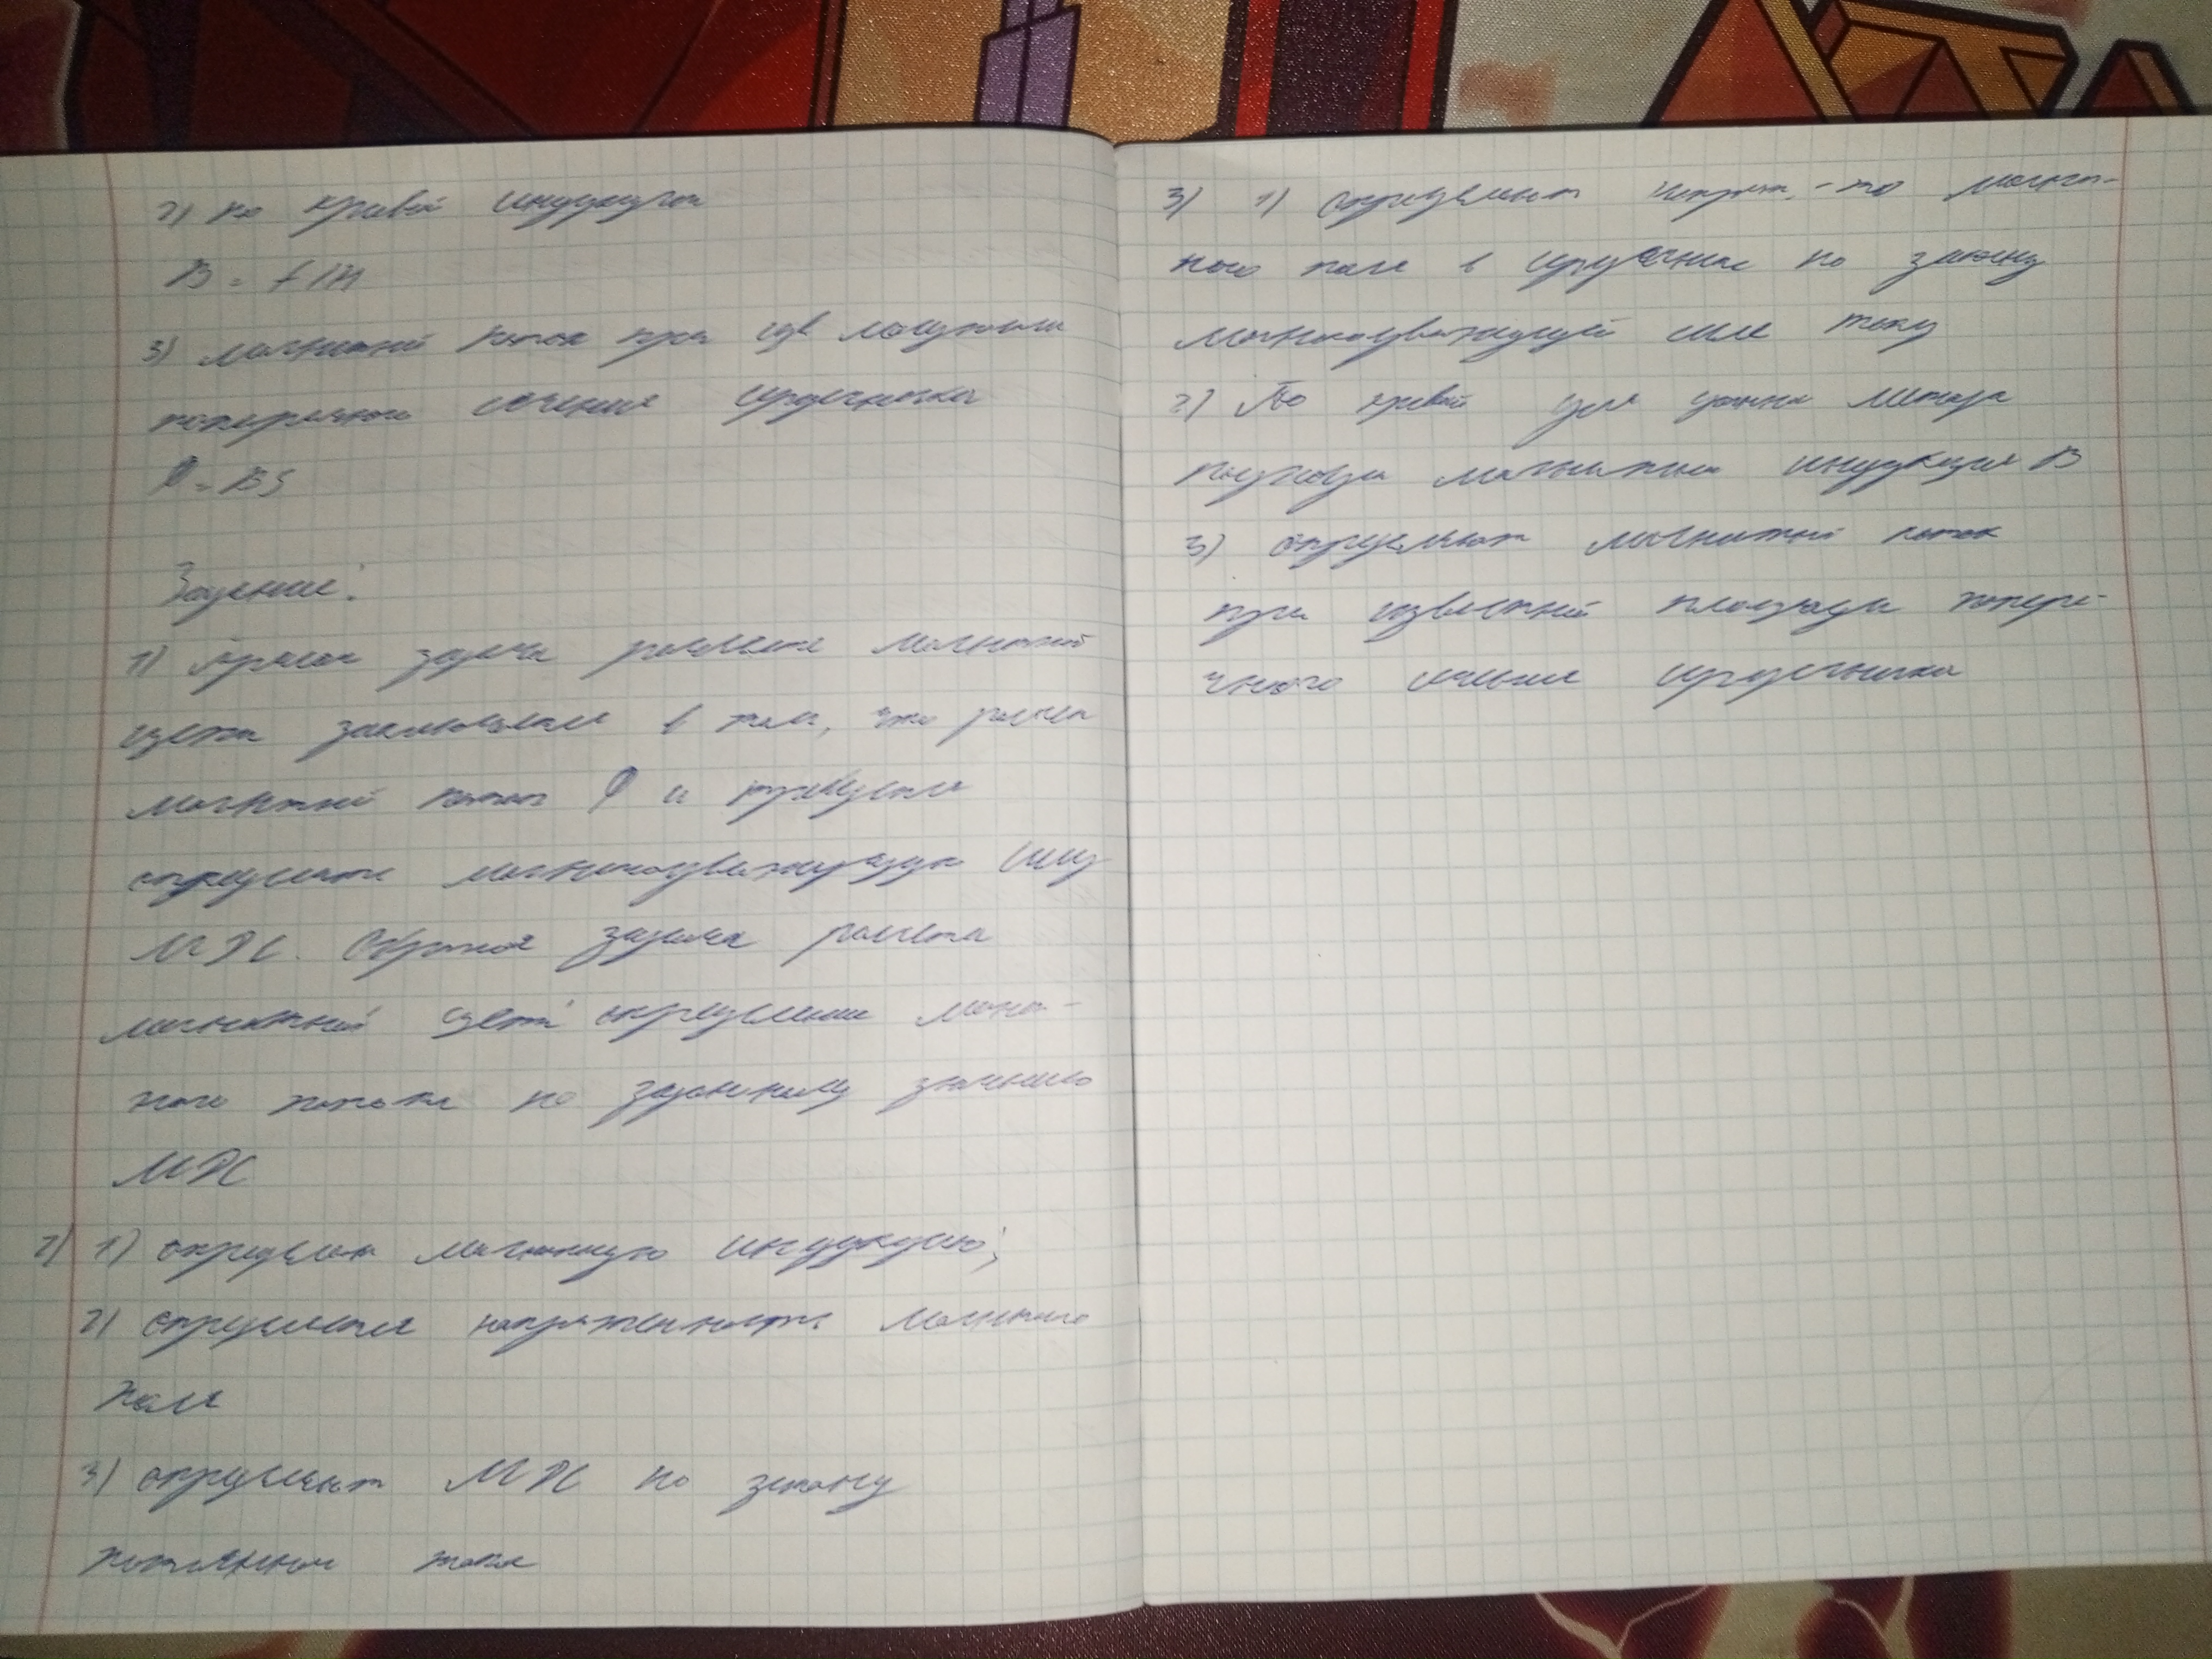 2) по кривой индукции
B = f (H
3) магнитный поток при
поперечном сечении сердечника
Ф = BS
Задание:
1) Прямая задача расчета магнитной
цепи заключается в том, что
магнитный поток Ф и требуется
определить магнитодвижущую силу
МДС. Обратная задача расчета
магнитной цепи определении магнит-
ного потока по заданному значению
МДС
2) 1) определяют магнитную индукцию;
2) определяется напряженность магнитного
поля
3) определяют МДС по закону
тока
3) 1) Определяют напряж.-то магнит-
ного поля в сердечнике по закону
магнитодвижущей силе току
2) По кривой для данного
магнитная индукция B
3) определяют магнитный поток
при известной площади попере-
чного сечения сердечника